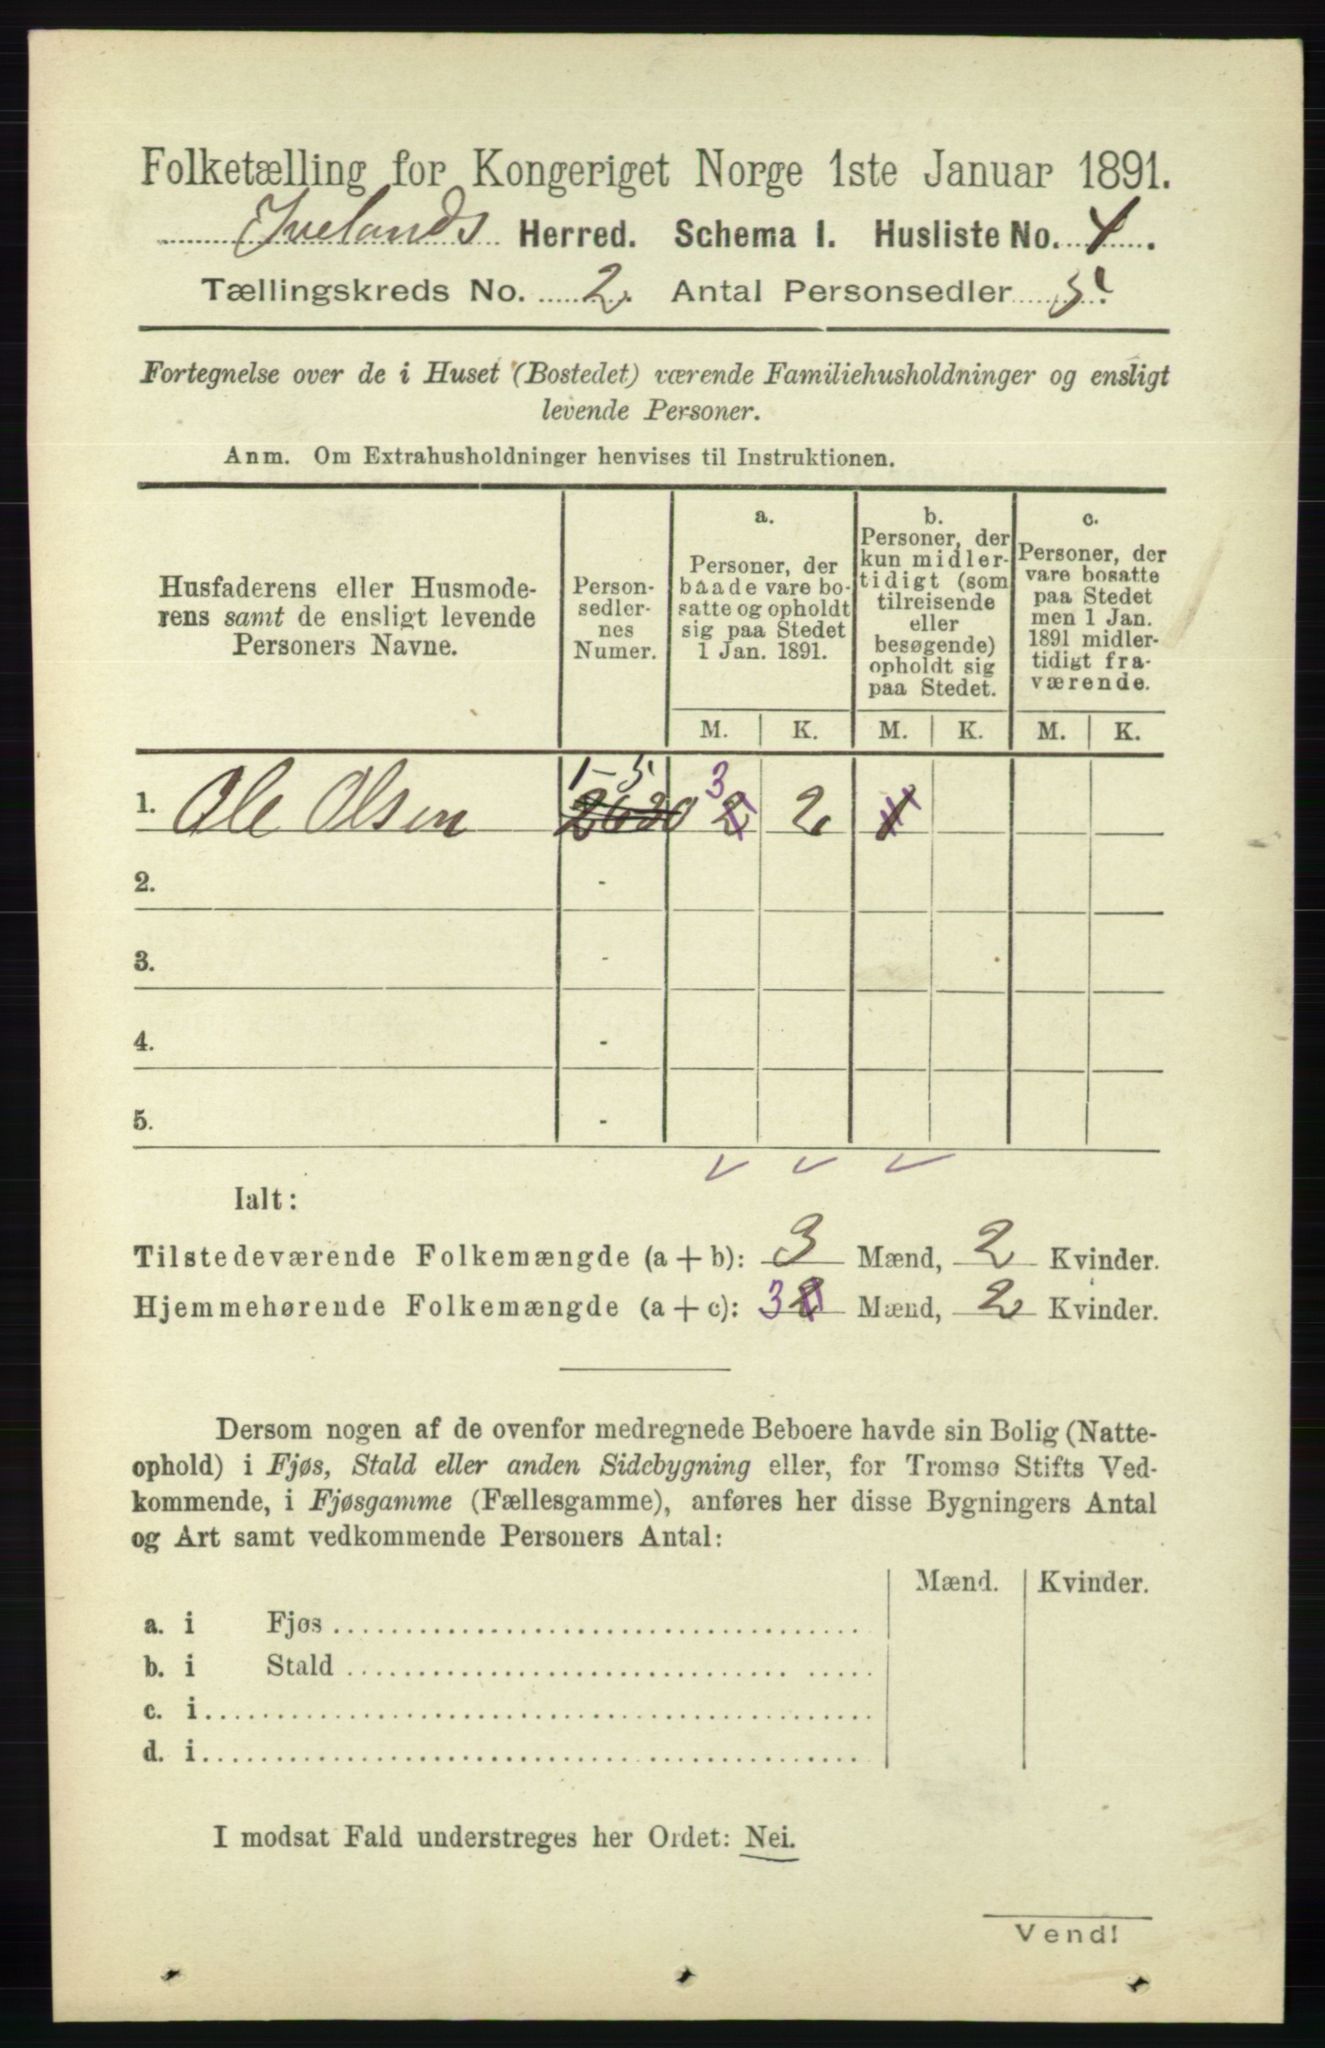 Folketælling for Kongeriget Norge 1ste Januar 1891.
Ivelands Herred. Schema I. Husliste No. 4.
Tællingskreds No. 2. Antal Personsedler 5.
Fortegnelse over de i Huset (Bostedet) værende Familiehusholdninger og ensligt
levende Personer.
Anm. Om Extrahusholdninger henvises til Instruktionen.
Husfaderens eller Husmode-
rens samt de ensligt levende
Personers Navne.
Person-
sedler-
nes
Numer.
a.
Personer, der
baade vare bo-
satte og opholdt
sig paa Stedet
1 Jan. 1891.
b.
Personer, der
kun midler-
tidigt (som
tilreisende
eller
besøgende)
opholdt sig
paa Stedet.
c.
Personer, der
vare bosatte
paa Stedet
men 1 Jan.
1891 midler-
tidigt fra-
værende.
M. K. M. K. M. K.
1-5 3
1. Ole Olsen 2630 2 2 1
2. -
3. -
4. -
5. -
Ialt:
Tilstedeværende Folkemængde (a + b): 3 Mænd, 2 Kvinder.
Hjemmehørende Folkemængde (a + c): 3 2 Mænd, 2 Kvinder.
Dersom nogen af de ovenfor medregnede Beboere havde sin Bolig (Natte-
ophold) i Fjøs, Stald eller anden Sidebygning eller, for Tromsø Stifts Ved-
kommende, i Fjøsgamme (Fællesgamme), anføres her disse Bygningers Antal
og Art samt vedkommende Personers Antal:
Mænd. Kvinder.
a. i Fjøs
b. i Stald
c. i
d. i
I modsat Fald understreges her Ordet: Nei.
Vend!